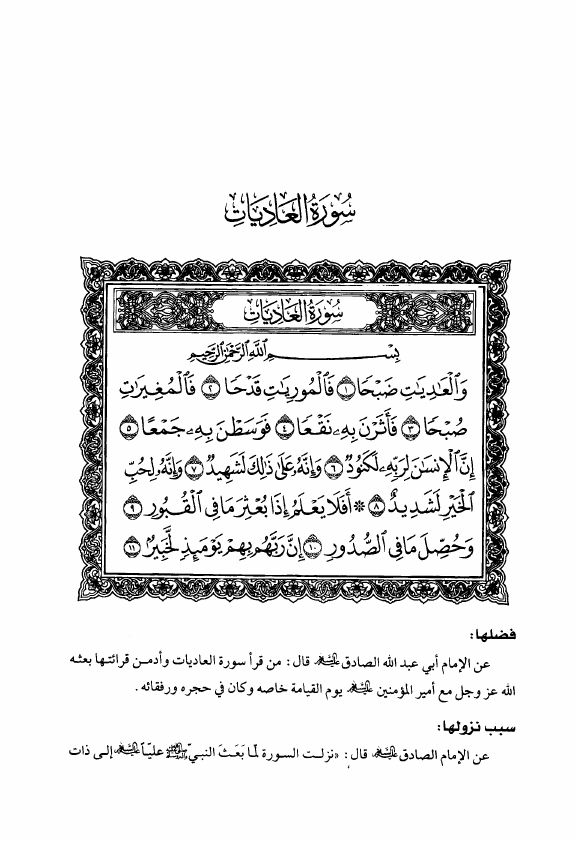 سُورَةُ العَادِيَاتِ
سُورَةُ العَادِيَاتِ
بِسْمِ اللَّهِ الرَّحْمَٰنِ الرَّحِيمِ
وَٱلْعَـٰدِيَـٰتِ ضَبْحًا ١ فَٱلْمُورِيَـٰتِ قَدْحًا ٢ فَٱلْمُغِيرَٰتِ
صُبْحًا ٣ فَأَثَرْنَ بِهِۦ نَقْعًا ٤ فَوَسَطْنَ بِهِۦ جَمْعًا ٥
إِنَّ ٱلْإِنسَـٰنَ لِرَبِّهِۦ لَكَنُودٌ ٦ وَإِنَّهُۥ عَلَىٰ ذَٰلِكَ لَشَهِيدٌ ٧ وَإِنَّهُۥ لِحُبِّ
ٱلْخَيْرِ لَشَدِيدٌ ٨ * أَفَلَا يَعْلَمُ إِذَا بُعْثِرَ مَا فِى ٱلْقُبُورِ ٩
وَحُصِّلَ مَا فِى ٱلصُّدُورِ ١٠ إِنَّ رَبَّهُم بِهِمْ يَوْمَئِذٍ لَّخَبِيرٌ ١١
فضلها:
عن الإمام أبي عبد الله الصادق عليه السلام قال: من قرأ سورة العاديات وأدمن قرائتها بعثه
الله عز وجل مع أمير المؤمنين عليه السلام يوم القيامة خاصه وكان في حجره ورفقائه.
سبب نزولها:
عن الإمام الصادق عليه السلام قال: «نزلت السورة لمّا بَعَثَ النبيّ ﷺ عليّاً عليه السلام إلى ذات